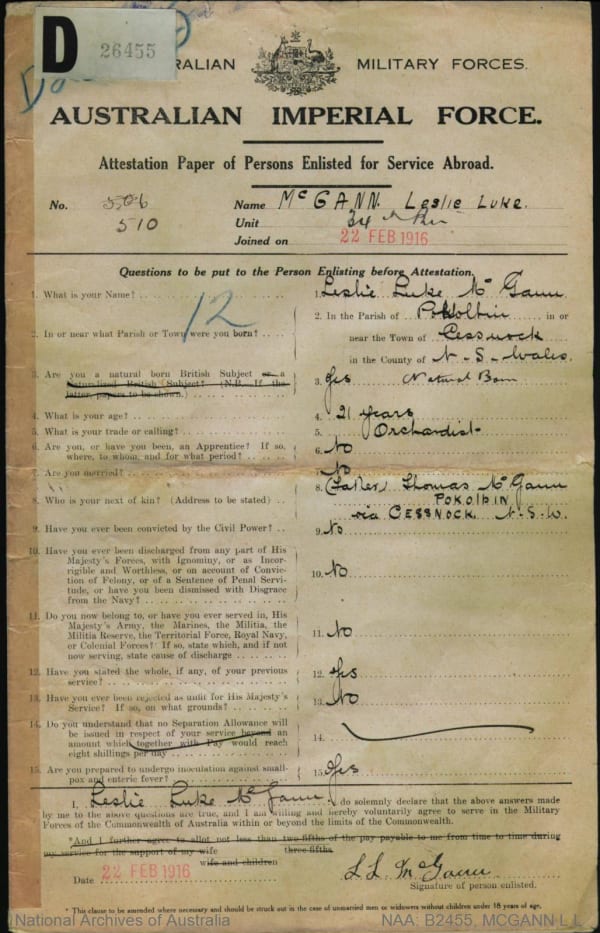 D 26455
RALIAN MILITARY FORCES.
AUSTRALIAN IMPERIAL FORCE.
Attestation Paper of Persons Enlisted for Service Abroad.
No. 506 Name McGANN. Leslie Luke.
510 Unit 34th Bn
Joined on 22 FEB 1916
Questions to be put to the Person Enlisting before Attestation.
12
1. What is your Name? 1. Leslie Luke McGann
2. In or near what Parish or Town were you born? 2. In the Parish of Pokolbin in or
near the Town of Cessnock
in the County of N. S. Wales.
3. Are you a natural born British Subject or a 3. Yes Natural Born
Naturalised British Subject? (N.B. If the
letter, papers to be shown.)
4. What is your age? 4. 21 years
5. What is your trade or calling? 5. Orchardist
6. Are you, or have you been, an Apprentice? If so, 6. No
where, to whom, and for what period?
7. Are you married? No
8. Who is your next of kin? (Address to be stated) 8. (Father) Thomas McGann
POKOLBIN
via CESSNOCK. N.S.W.
9. Have you ever been convicted by the Civil Power? 9. No
10. Have you ever been discharged from any part of His
Majesty's Forces, with Ignominy, or as Incor-
rigible and Worthless, or on account of Convic-
tion of Felony, or of a Sentence of Penal Servi-
tude, or have you been dismissed with Disgrace
from the Navy? 10. No
11. Do you now belong to, or have you ever served in, His
Majesty's Army, the Marines, the Militia, the
Militia Reserve, the Territorial Force, Royal Navy,
or Colonial Forces? If so, state which, and if not
now serving, state cause of discharge 11. No
12. Have you stated the whole, if any, of your previous
service? 12. Yes
13. Have you ever been rejected as unfit for His Majesty's
Service? If so, on what grounds? 13. No
14. Do you understand that no Separation Allowance will
be issued in respect of your service beyond an
amount which together with Pay would reach
eight shillings per day 14.
15. Are you prepared to undergo inoculation against small-
pox and enteric fever? 15. Yes
I, Leslie Luke McGann, do solemnly declare that the above answers made
by me to the above questions are true, and I am willing and hereby voluntarily agree to serve in the Military
Forces of the Commonwealth of Australia within or beyond the limits of the Commonwealth.
*And I further agree to allot not less than two-fifths of the pay payable to me from time to time during
my service for the support of my wife three-fifths
wife and children
Date 22 FEB 1916 L L McGann
Signature of person enlisted.
* This clause to be amended where necessary and should be struck out in the case of unmarried men or widowers without children under 18 years of age.
National Archives of Australia NAA: B2455, MCGANN L L